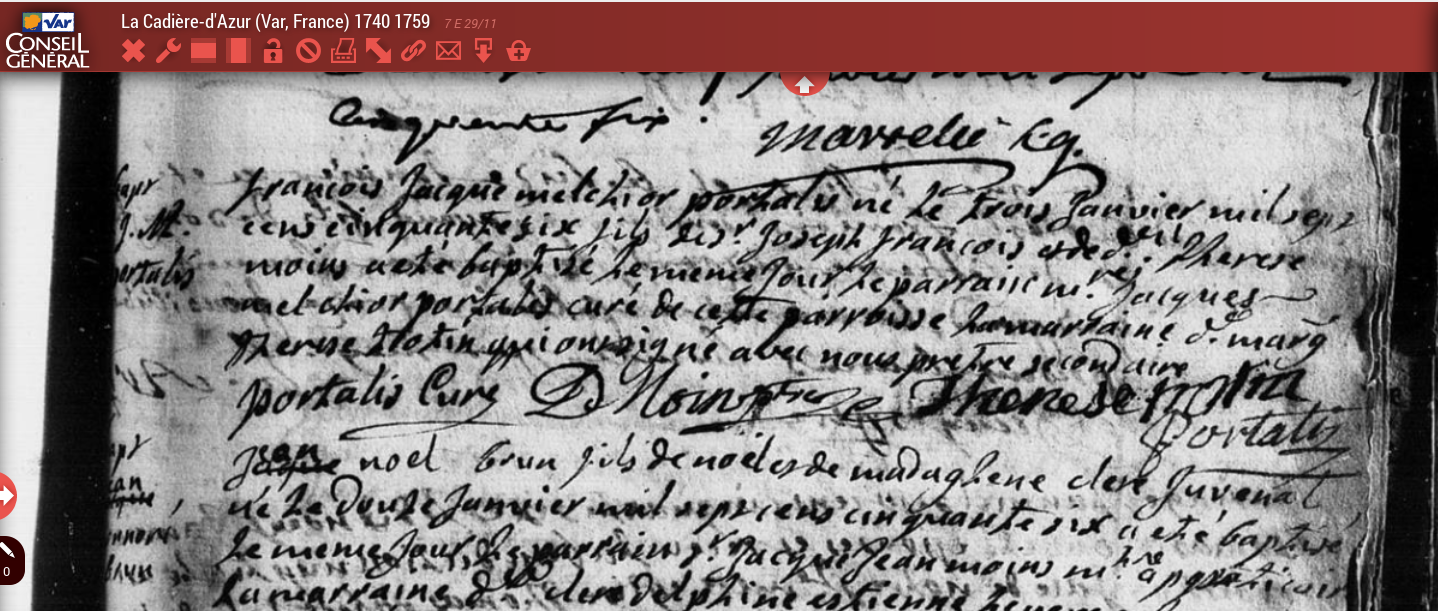 La Cadière-d'Azur (Var, France) 1740 1759 7 E 29/11
VAR
CONSEIL
GÉNÉRAL
Cinquante six.
francois Jacque melchior portalis né le trois Janvier mil sept
cens cinquante six fils de sr. Joseph francois et de dlle therese
moins a eté baptisé le meme Jour le parrain mre. Jacques
melchior portalis curé de cette parroisse la marraine dlle marg
therese qui ont signé avec nous pretre secondaire
J. M.
portalis
portalis Curé D Moin ptre Therese
Portalis
Jean
Jaque noel brun fils de noel et de madaghene clere Juvenal
né le douze Janvier mil sept cens cinquante six a eté baptisé
jean
honoré
brun
le meme Jour le parrain sr. Jacque Jean moins mtre apoticaire
la marraine dlle clere delphine estienne
0